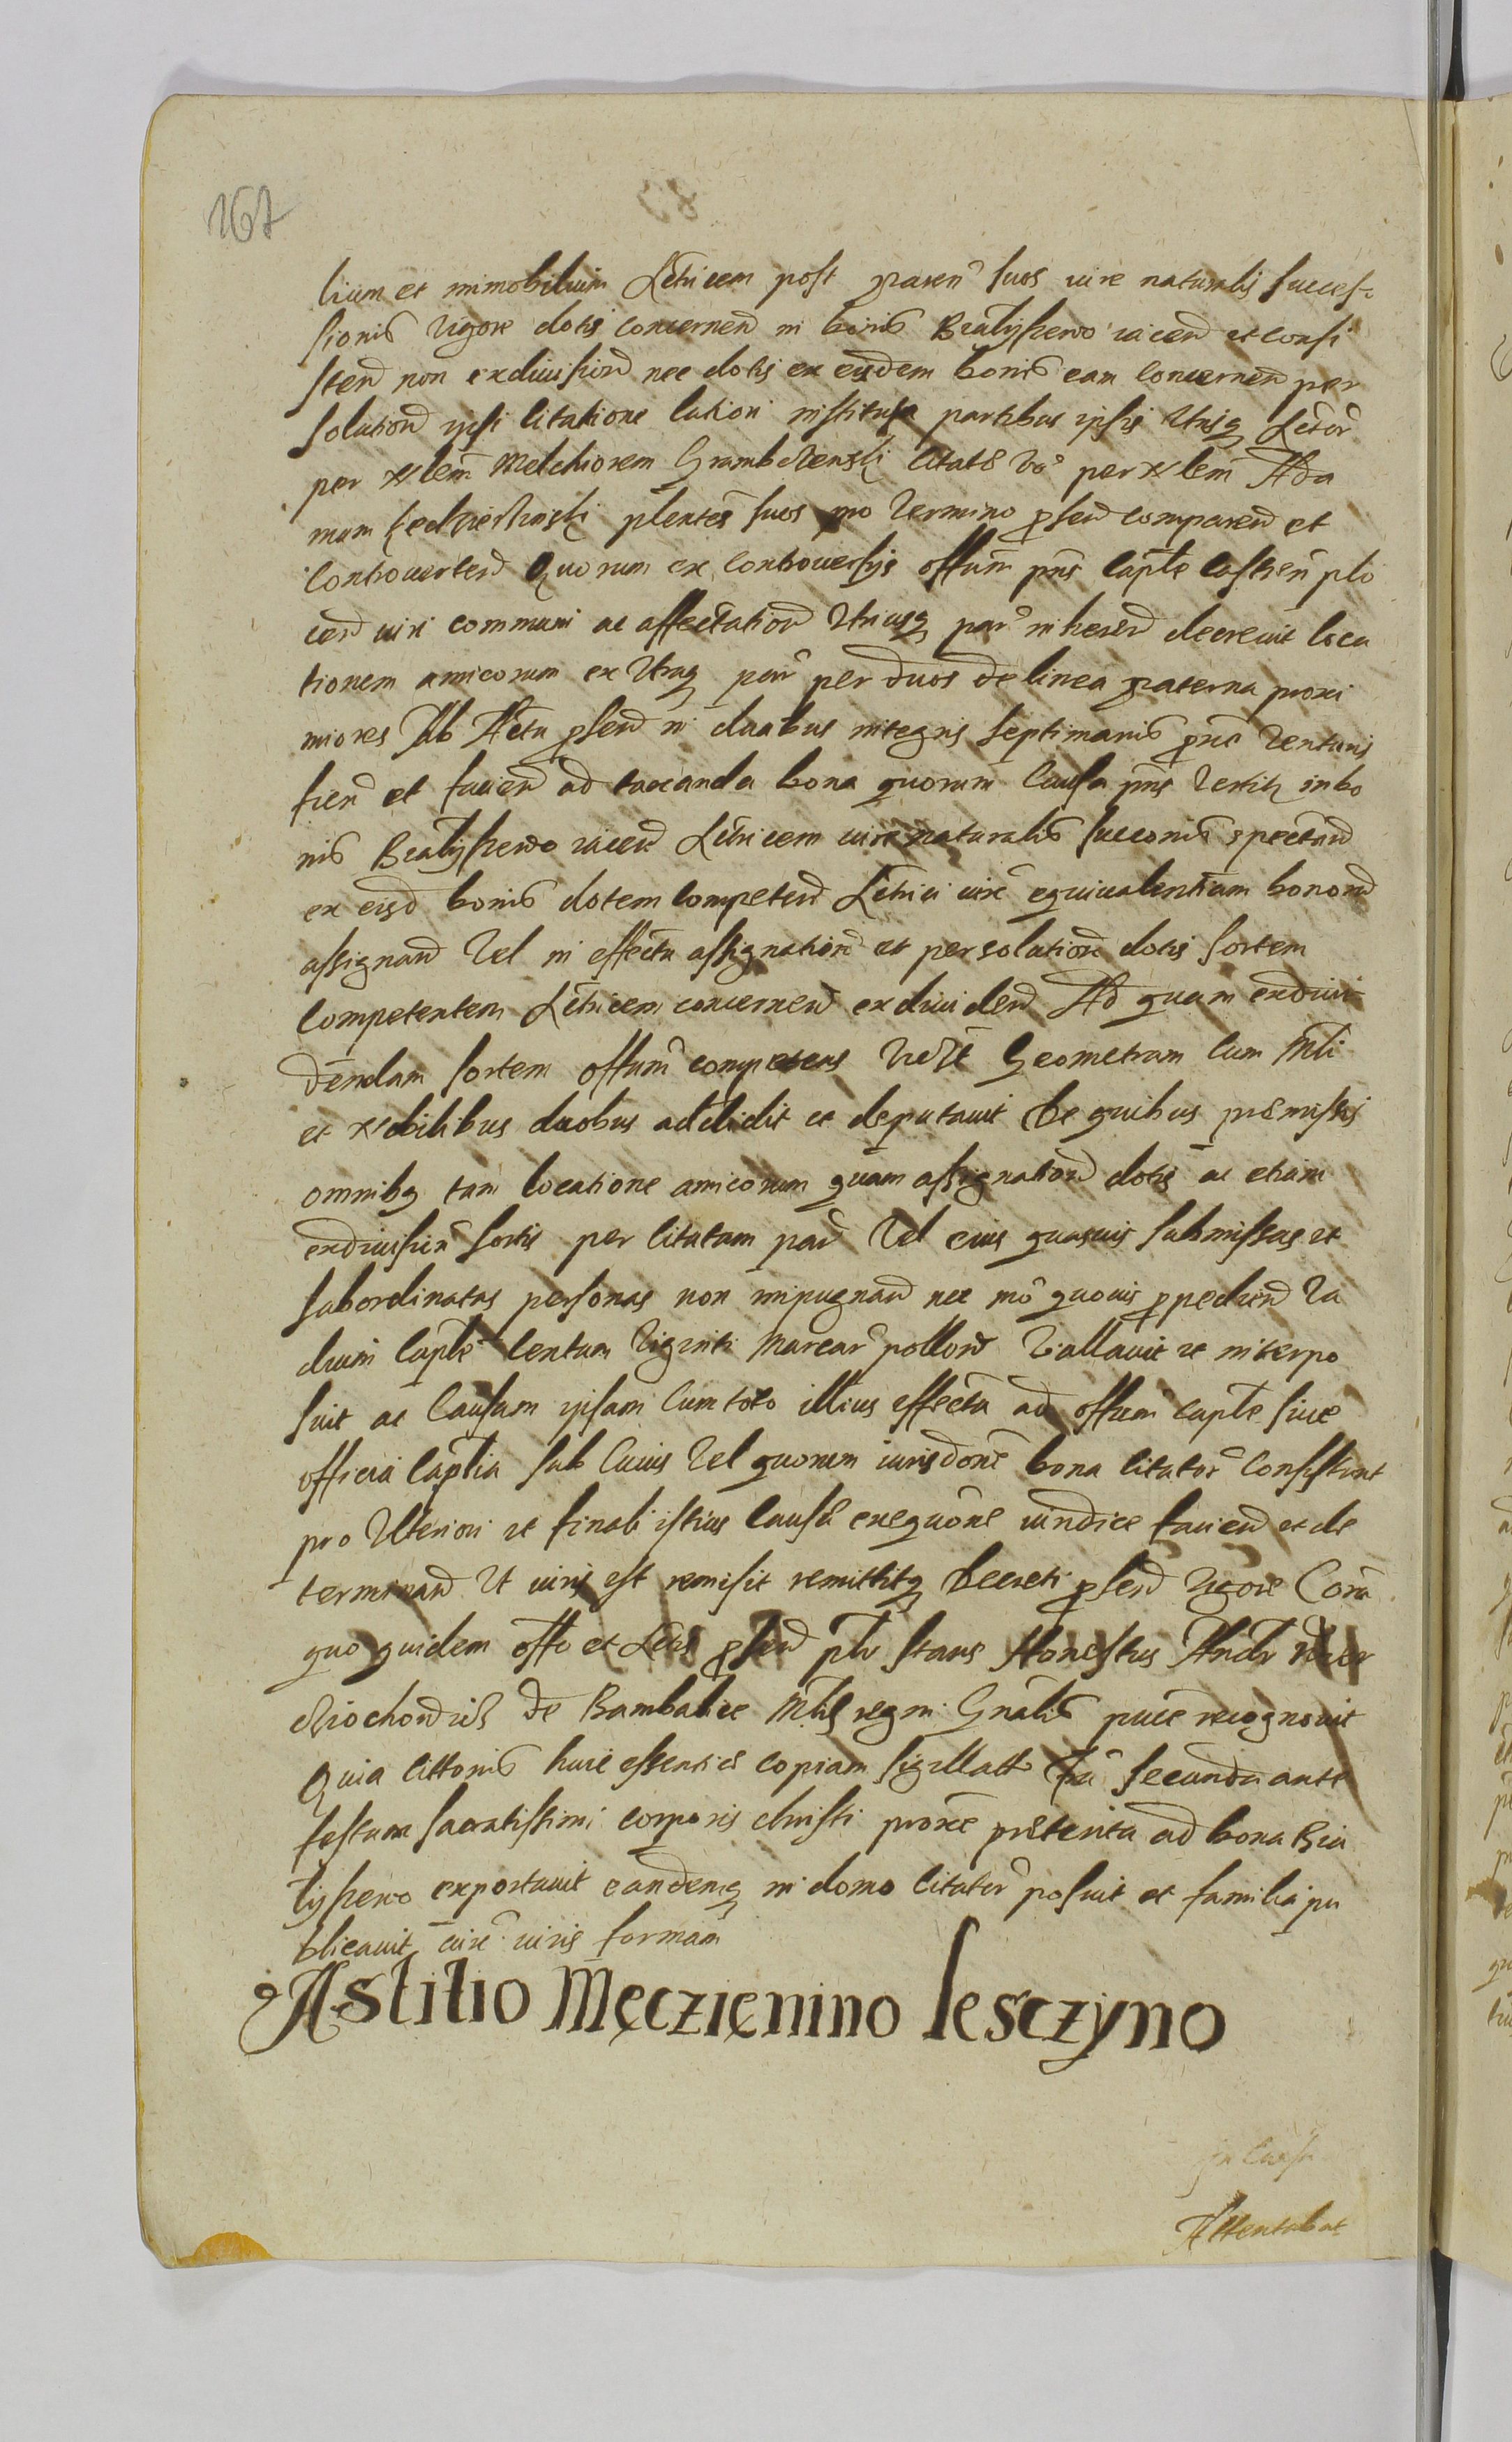 167
lium et immobilium Lctricem post paren suos iure naturalis succes
sionis vigore dotis concernen in bonis Bialyszewo iacen et consi
sten non exdiuision nec dotis ex eisdem bonis eam concernen per
solution ipsi citatione lation institusa partibus ipsis vtrisq Lctor
per Nlem Melchiorem Grambczewski citate vo per Nlem Ada
mum plentes suos pro termino psen comparen et
controuerten Quorum ex controuersys offum pns capte castren plo
cen iuri communi ac affectation vtriusq par inheren decreuit loca
tionem amicorum ex vtraq par per duos de linea paterna proxi
miores Ab Actu psen in duabus integris septimanis pne venturis
fien et facien ad taxanda bona quorum causa pns vertitr in bo
nis Bialyszewo iacen Lctricem iure naturalis succonis spectan
ex eisd bonis dotem competen Lctrici iux equiualentiam bonoru
assignan vel in effectu assignation et persolation dotis sortem
competentem Lctricem concernen exdiuiden Ad quam exdiui
dendam sortem offum competens Geometram cum Mli
et Nobilibus duobus addidit et deputauit De quibus premissis
omnibq tam locatione amicorum quam assignation dotis ac etiam
exdiuision sortis per citatam par vel eius quasuis submissas et
subordinatas personas non impugnan nec mo quouis ppedien va
dium capte centum viginti marcar pollon vallauit et interpo
suit ac causam ipsam cum toto illius effectu ad offum capte siue
officia captia sub cuius vel quorum iurisdone bona citator consistunt
pro vlteriori et finali istius cause exequone iuridice facien et de
terminan vt iuris est remisit remittitq Decreti psen vigore Cora
quo quidem offo et Lctis psen plr stans Honestus
de Mtis regni Gnalis puce recognouit
Quia cittonis huic essentie copiam sigillat fria secunda ante
festum sacratissimi corporis christi proxe preterita ad bona Bia
lyszewo exportauit eandemq in domo citator posuit et familia pu
blicauit iux iuris formam
Astitio Męczięnino Lesczyno
In causa
Attentabat